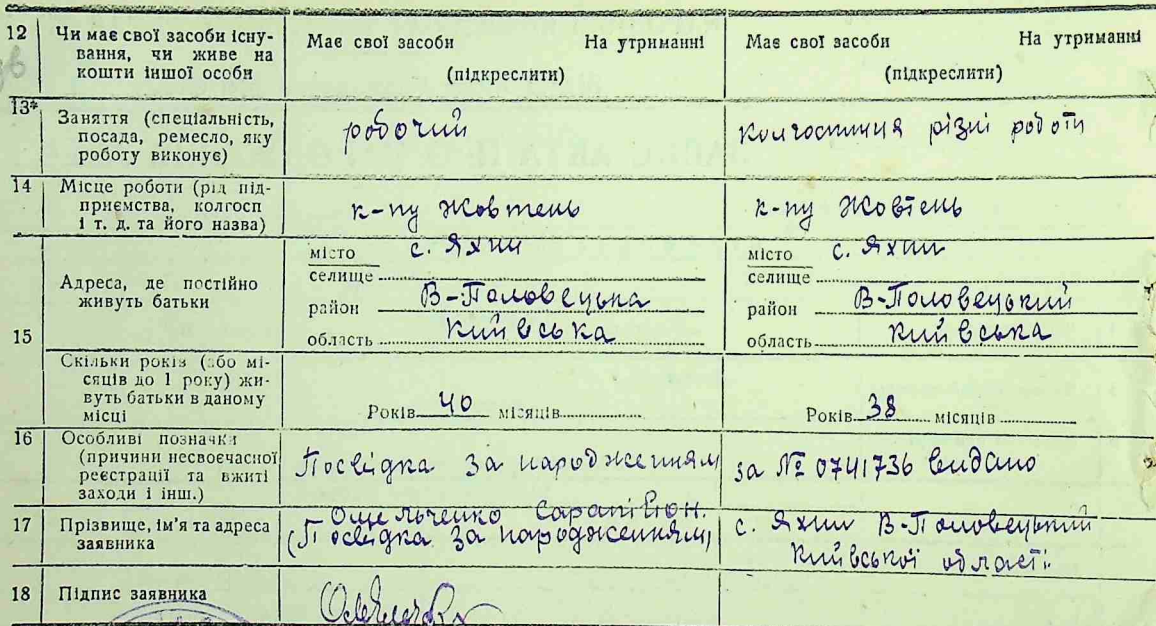 12 Чи має свої засоби існування, чи живе на кошти іншої особи
Має свої засоби На утриманні
(підкреслити)
Має свої засоби На утриманні
(підкреслити)
13* Заняття (спеціальність, посада, ремесло, яку роботу виконує)
робочий
колгоспниця різні роботи
14 Місце роботи (рід підприємства, колгосп і т. д. та його назва)
к-пу Жовтень
к-пу Жовтень
15 Адреса, де постійно живуть батьки
місто с. Яхни
селище
район В-Половецька
область Київська
місто с. Яхни
селище
район В-Половецький
область Київська
Скільки років (або місяців до 1 року) живуть батьки в даному місці
Років 40 місяців
Років 38 місяців
16 Особливі позначки (причини несвоєчасної реєстрації та вжиті заходи і інш.)
Посвідка за народженням
за № 0741736 видано
17 Прізвище, ім'я та адреса заявника
Омельченко Сарапіон.
(Посвідка за народженням)
с. Яхни В-Половецький
Київської області
18 Підпис заявника